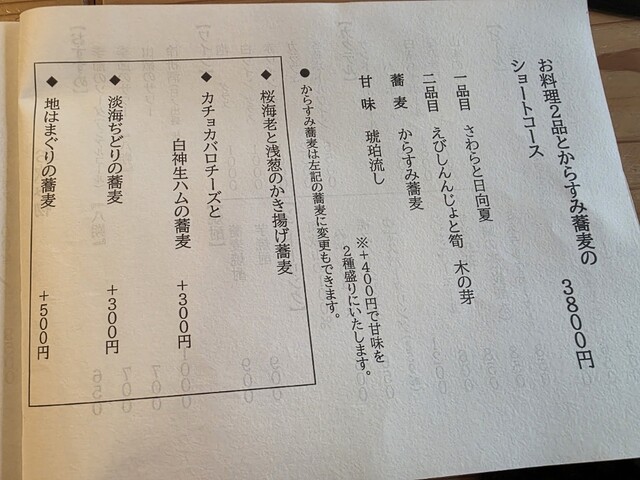 お料理2品とからすみ蕎麦の
ショートコース　3800円
一品目　さわらと日向夏
二品目　えびしんじょと筍　木の芽
蕎麦　からすみ蕎麦
甘味　琥珀流し
※+400円で甘味を
2種盛りにいたします。
●からすみ蕎麦は左記の蕎麦に変更もできます。
◆桜海老と浅葱のかき揚げ蕎麦
◆カチョカバロチーズと
白神生ハムの蕎麦　+300円
◆淡海ぢどりの蕎麦　+300円
◆地はまぐりの蕎麦　+500円